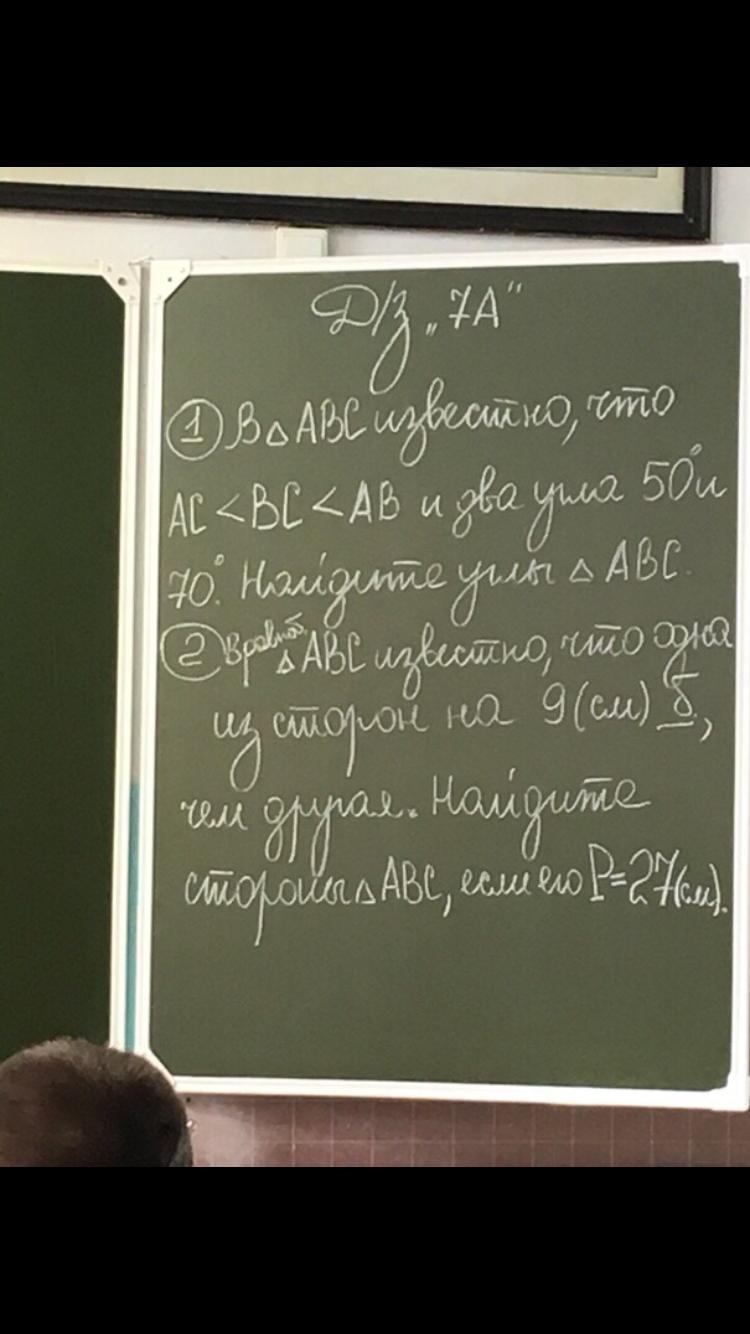 Д/з „7А“
① В △ АВС известно, что
АС < ВС < АВ и два угла 50° и
70°. Найдите углы △ АВС.
② В равноб. △ АВС известно, что одна
из сторон на 9 (см) б.,
чем другая. Найдите
стороны △ АВС, если его Р=27(см).